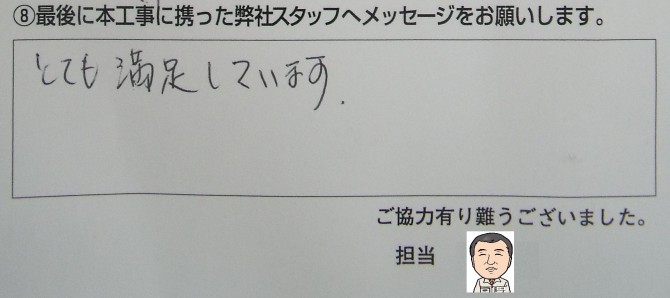 ⑧最後に本工事に携った弊社スタッフへメッセージをお願いします。
とても満足しています.
ご協力有り難うございました。
担当